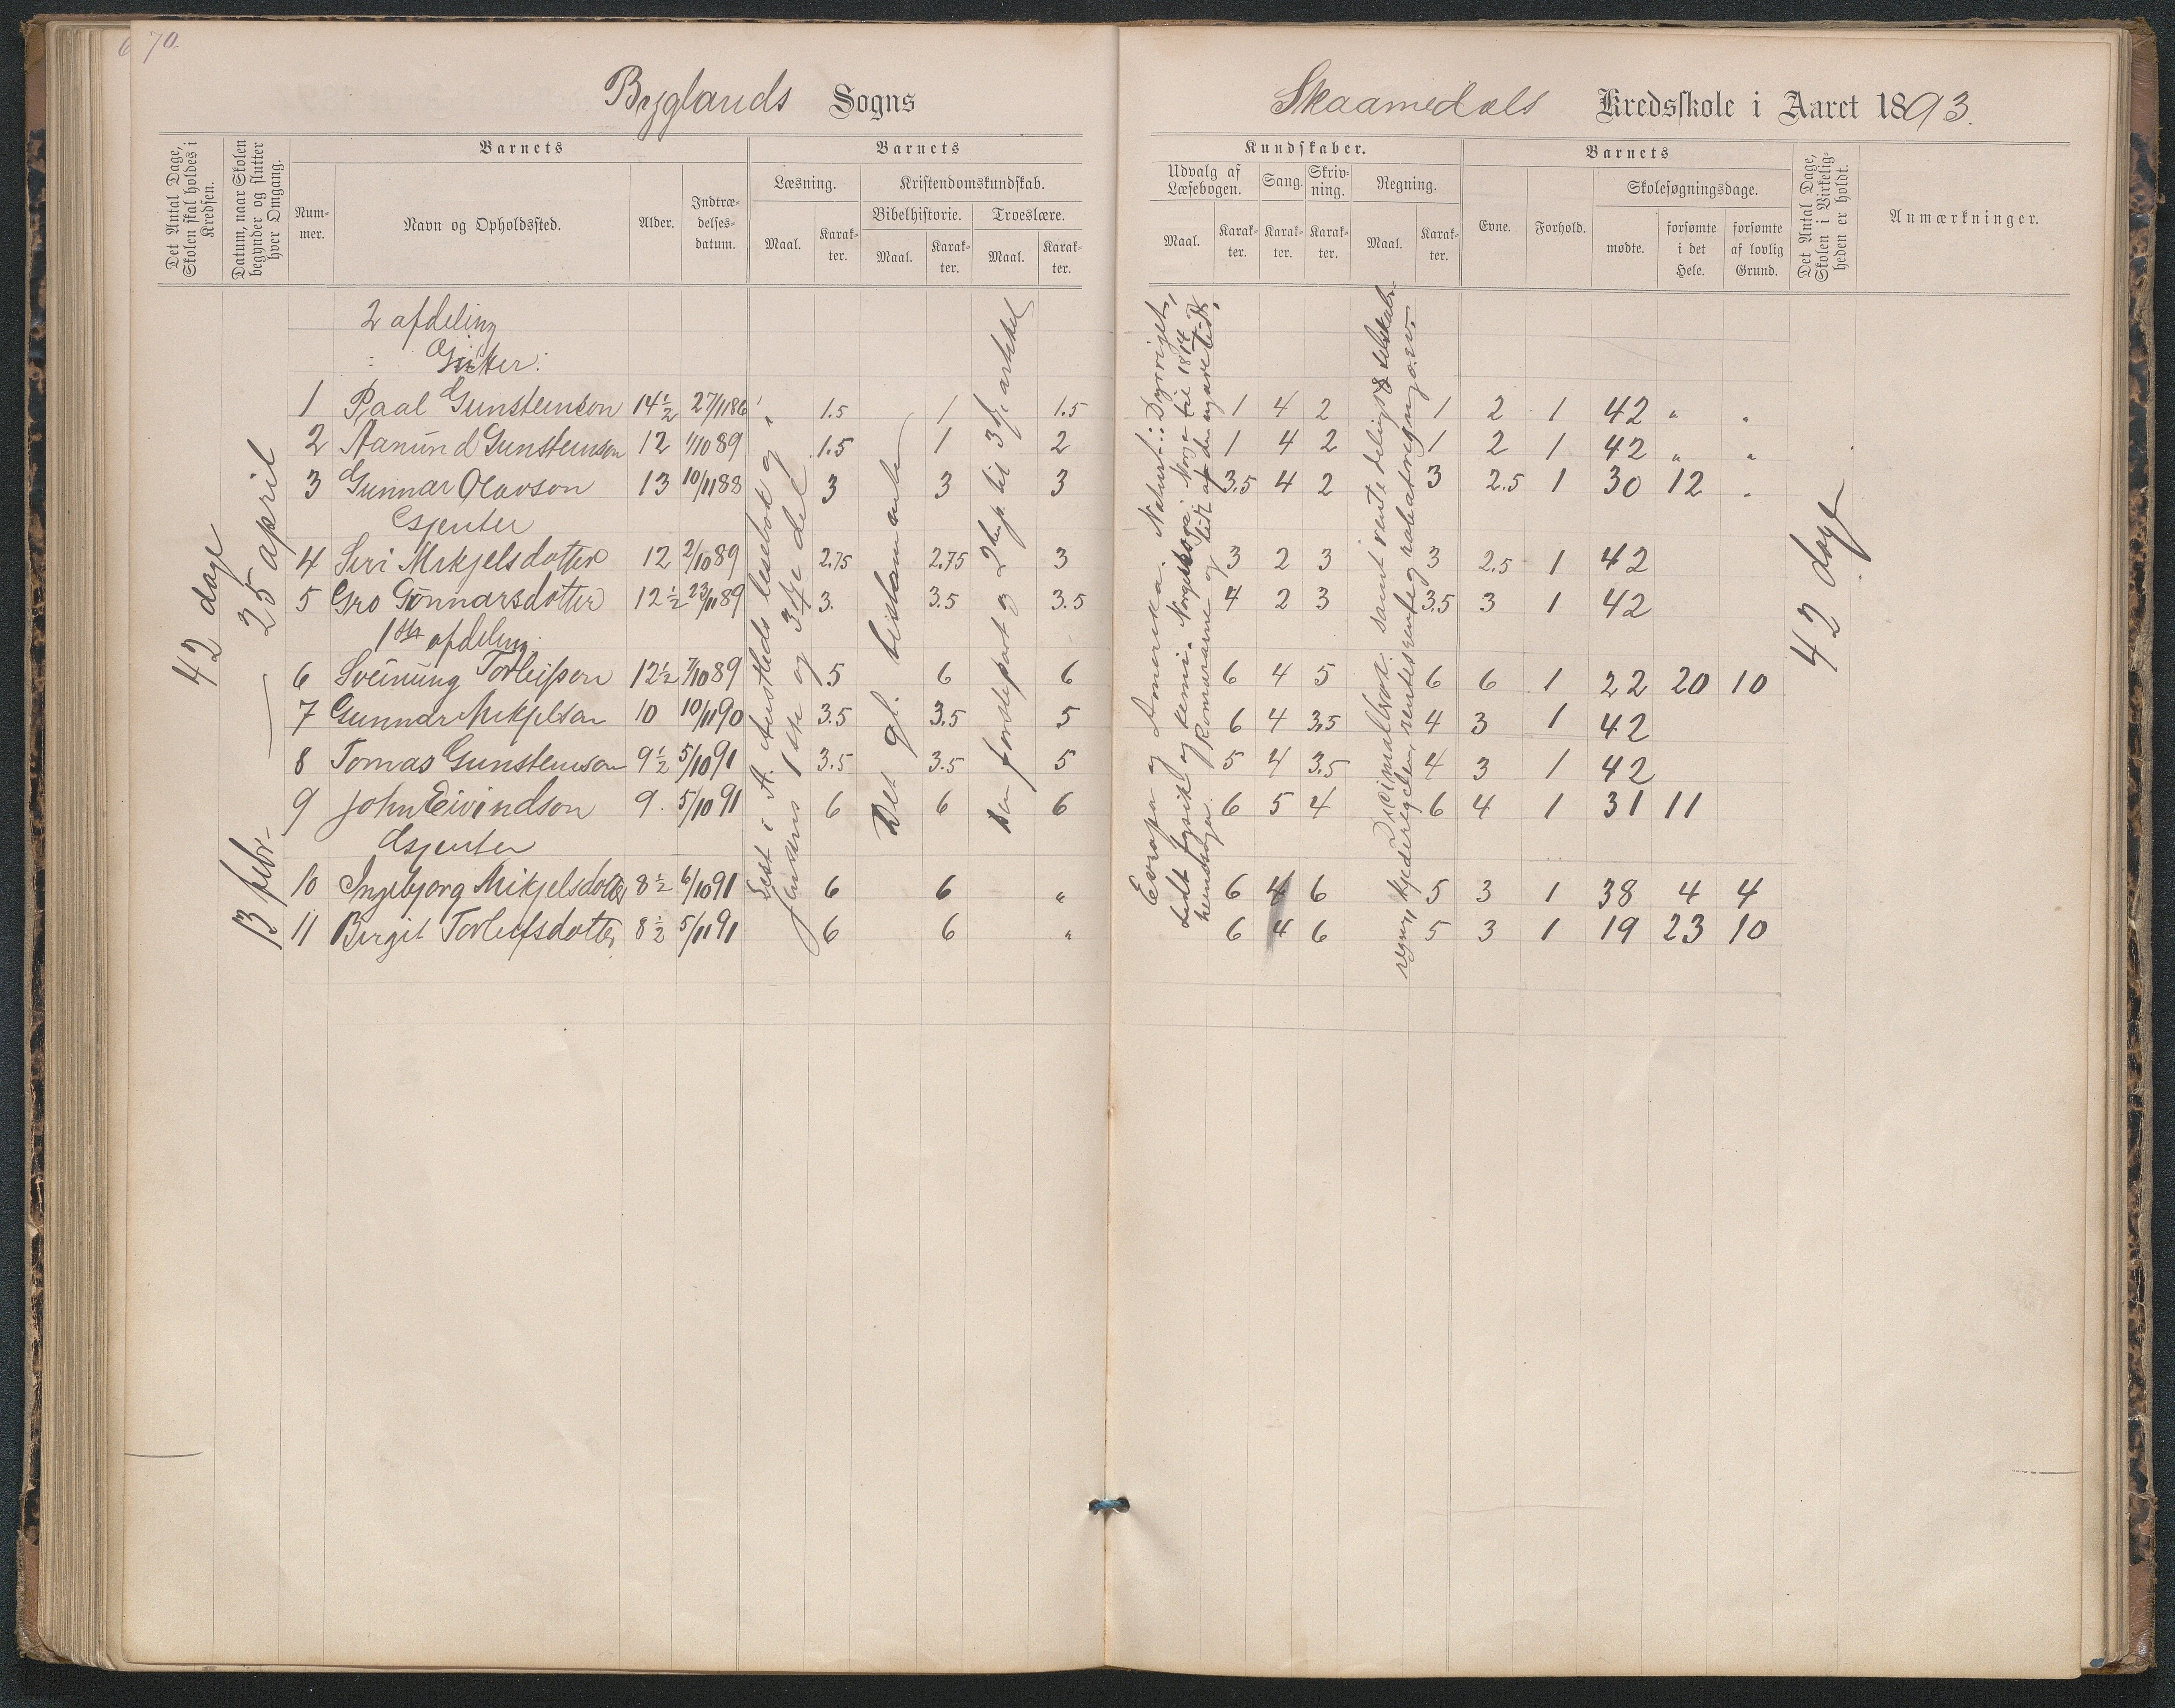 70.
Byglands Sogns
Skaamedals Kredsskole i Aaret 1893.
Det Antal Dage, Skolen skal holdes i Kredsen.
Datum, naar Skolen begynder og slutter hver Omgang.
Barnets
Nummer.
Navn og Opholdssted.
Alder.
Indtrædelsesdatum.
Barnets
Læsning.
Maal.
Karakter.
Kristendomskundskab.
Bibelhistorie.
Maal.
Karakter.
Troeslære.
Maal.
Karakter.
Kundskaber.
Udvalg af Læsebogen.
Maal.
Karakter.
Sang.
Karakter.
Skrivning.
Karakter.
Regning.
Maal.
Karakter.
Barnets
Evne.
Forhold.
Skolesøgningsdage.
mødte.
forsømte i det Hele.
forsømte af lovlig Grund.
Det Antal Dage, Skolen i Virkeligheden er holdt.
Anmærkninger.
42 dage
13 febr. — 25 april
2 afdeling
Gutter:
1 Paal Gunsteinson 14½ 27/11 86 1.5 1 1.5 1 4 2 1 2 1 42 " "
2 Aanund Gunsteinson 12 1/10 89 1.5 1 2 1 4 2 1 2 1 42 " "
3 Gunnar Olavson 13 10/11 88 3 3 3 3.5 4 2 3 2.5 1 30 12 "
Gjenter
4 Siri Mikjelsdotter 12 2/10 89 2.75 2.75 3 3 2 3 3 2.5 1 42
5 Gro Gunnarsdotter 12½ 23/11 89 3. 3.5 3.5 4 2 3 3.5 3 1 42
1ste afdeling
6 Sveinung Torleifson 12½ 7/10 89 5 6 6 6 4 5 6 6 1 22 20 10
7 Gunnar Mikjelson 10 10/11 90 3.5 3.5 5 6 4 3.5 4 3 1 42
8 Tomas Gunsteinson 9½ 5/10 91 3.5 3.5 5 5 4 3.5 4 3 1 42
9 John Eivindson 9. 5/10 91 6 6 6 6 5 4 6 4 1 31 11
Gjenter
10 Ingebjorg Mikjelsdotter 8½ 6/10 91 6 6 " 6 4 6 5 3 1 38 4 4
11 Birgit Torleifsdotter 8½ 5/11 91 6 6 " 6 4 6 5 3 1 19 23 10
Lest i A. Austlieds lesebok og i
Jensens 1ste og 3dje del
Det gl. testamente
Den forste part og 2 hp. til 3dje artikel
Evropa og Amerika. Naturf.: Dyreriget,
lidt fysik og kemi. Norges soge: Norge til 1814
Romerarne og lidt af den nyare tids
Decimalbrøk samt rente deling & selskabs-
regn, kjederegelen, rentesrente og rabatregning o.s.v.
42 dage